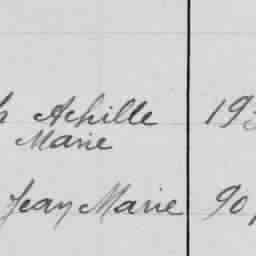 Achille
Marie
Jean Marie 90